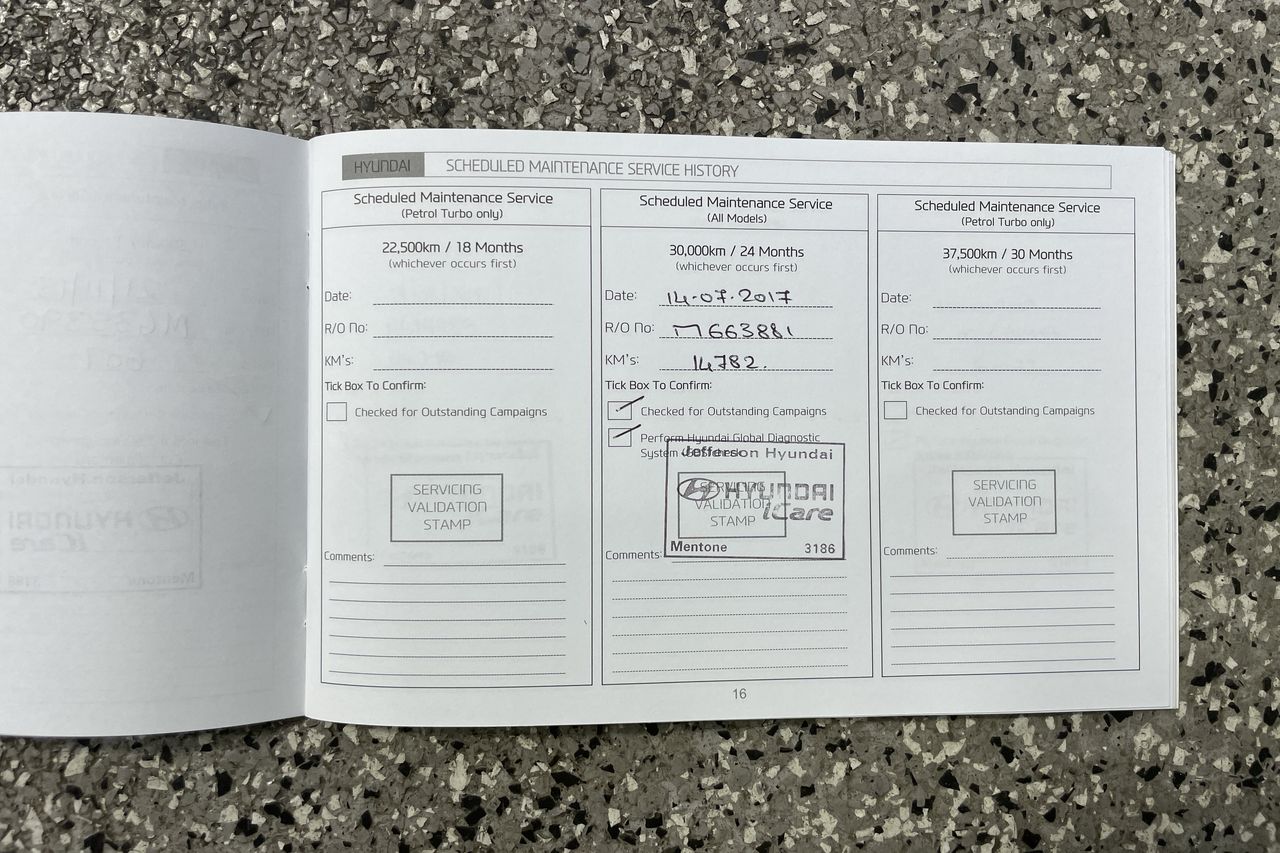 HYUNDAI SCHEDULED MAINTENANCE SERVICE HISTORY
Scheduled Maintenance Service
(Petrol Turbo only)
22,500km / 18 Months
(whichever occurs first)
Date:
R/O No:
KM's:
Tick Box To Confirm:
Checked for Outstanding Campaigns
SERVICING
VALIDATION
STAMP
Comments:
Scheduled Maintenance Service
(All Models)
30,000km / 24 Months
(whichever occurs first)
Date: 14.07.2017
R/O No: M663881
KM's: 14782.
Tick Box To Confirm:
Checked for Outstanding Campaigns
Perform Hyundai Global Diagnostic
System
Jefferson Hyundai
SERVICING
VALIDATION
STAMP
HYUNDAI
iCare
Mentone 3186
Comments:
Scheduled Maintenance Service
(Petrol Turbo only)
37,500km / 30 Months
(whichever occurs first)
Date:
R/O No:
KM's:
Tick Box To Confirm:
Checked for Outstanding Campaigns
SERVICING
VALIDATION
STAMP
Comments:
16